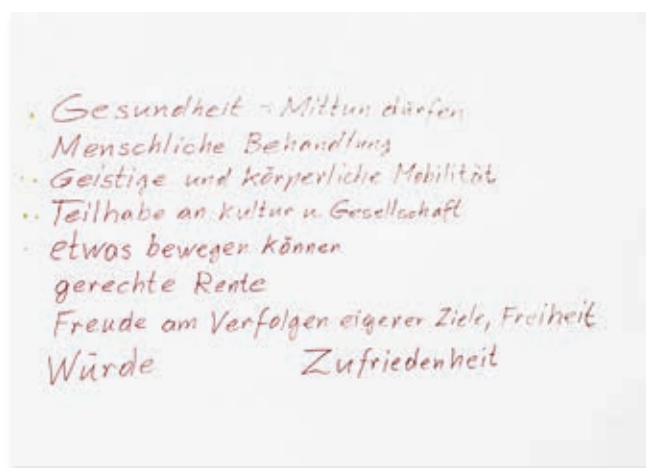 Gesundheit - Mittun dürfen
Menschliche Behandlung
Geistige und körperliche Mobilität
Teilhabe an Kultur u. Gesellschaft
etwas bewegen können
gerechte Rente
Freude am Verfolgen eigener Ziele, Freiheit
Würde Zufriedenheit